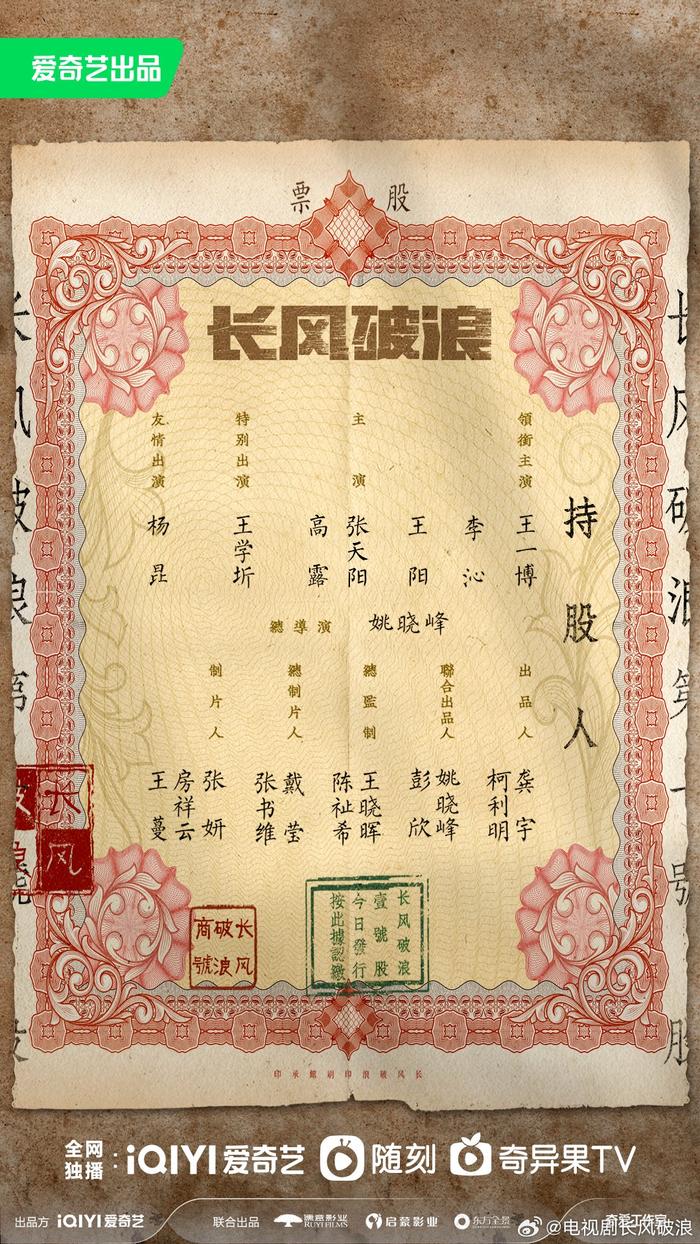 爱奇艺出品
股票
长风破浪
领衔主演
王一博
李沁
王阳
主演
张天阳
高露
特别出演
王学圻
友情出演
杨昆
持股人
總導演
姚晓峰
出品人
龚宇
柯利明
聯合出品人
姚晓峰
彭欣
總監制
王晓晖
陈祉希
總制片人
戴莹
张书维
制片人
张妍
房祥云
王蔓
长风破浪
壹號股
今日發行
按此據認繳
长风
破浪
商號
长风
长风破浪印刷館承印
全网独播:iQIYI爱奇艺 随刻 奇异果TV
出品方 iQIYI爱奇艺 联合出品 儒意影业 RUYI FILMS 启蒙影业 东方全景 奇爱工作室
@电视剧长风破浪